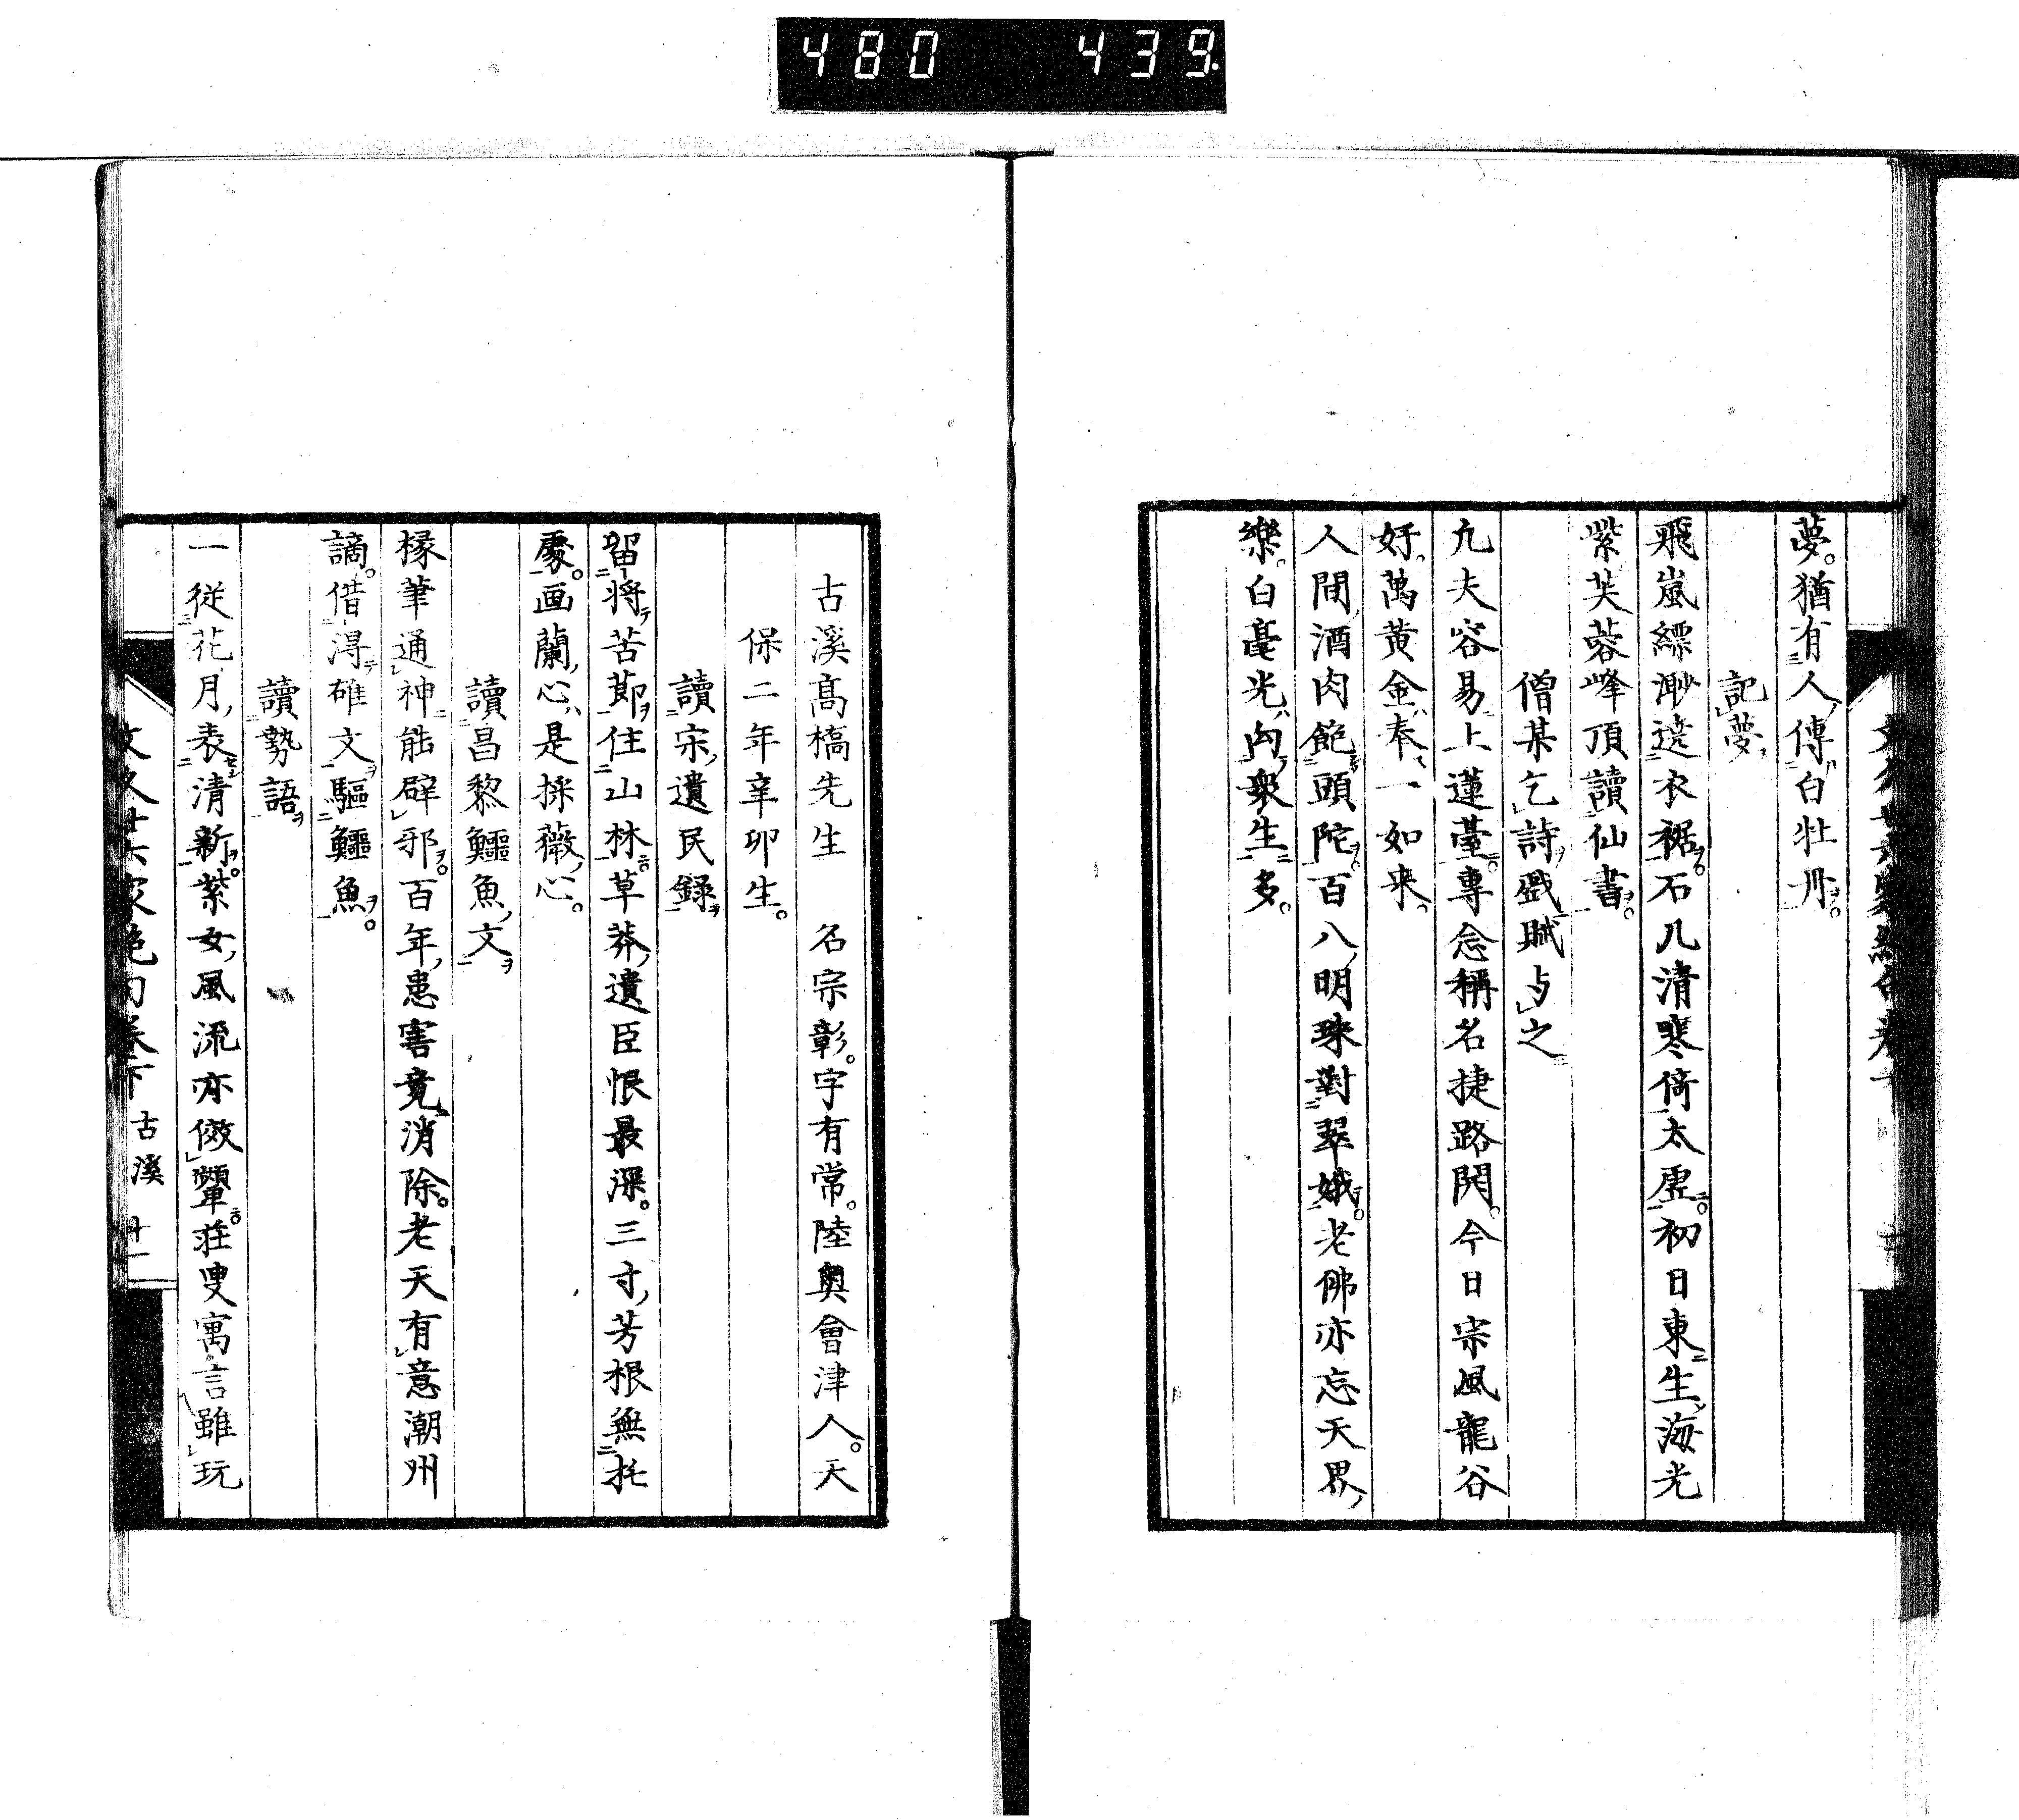 480 439
夢。猶有人傳白牡丹。
記夢
飛嵐縹渺遶衣裾。石几清寒倚太虛。初日東生海光
紫芙蓉峰頂讀仙書。
僧某乞詩戲賦与之
凡夫容易上蓮臺。專念稱名捷路開。今日宗風龍谷
好。萬黄金奉一如来。
人間酒肉飽頭陀。百八明珠對翠娥。老佛亦忘天界
樂。白毫光内衆生多。
古溪髙橋先生 名宗彰。字有常。陸奥會津人。天
保二年辛卯生。
讀宋遺民録
留将苦節住山林。草莽遺臣恨最深。三寸芳根無托
處。画蘭心是採薇心。
讀昌黎鱷魚文
椽筆通神能辟邪。百年患害竟消除。老天有意潮州
謫。借得碓文驅鱷魚。
讀勢語
一從花月表清新。紫女風流亦傚顰。荘叟寓言雖玩
文久廿六家絶句卷下 古溪 廿一